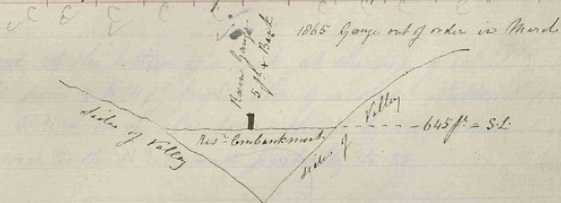 1865 Gauge out of order in March
Rain Gauge
5 ft. + Bank
Side of Valley
Resr. Embankment
side of Valley
645 ft. = S.L